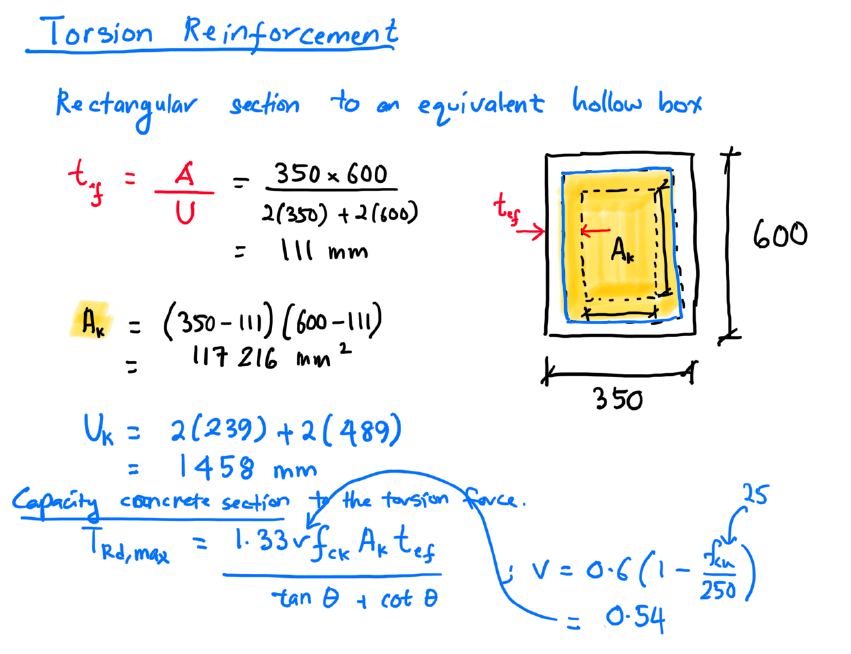 Torsion Reinforcement
Rectangular section to an equivalent hollow box
t_ef = A / U = 350 × 600 / 2(350) + 2(600)
= 111 mm
A_k = (350 - 111)(600 - 111)
= 117 216 mm²
U_k = 2(239) + 2(489)
= 1458 mm
t_ef
A_k
600
350
Capacity concrete section to the torsion force.
T_Rd,max = 1.33 v f_ck A_k t_ef / tan θ + cot θ
25
; V = 0.6 (1 - f_cu / 250)
= 0.54